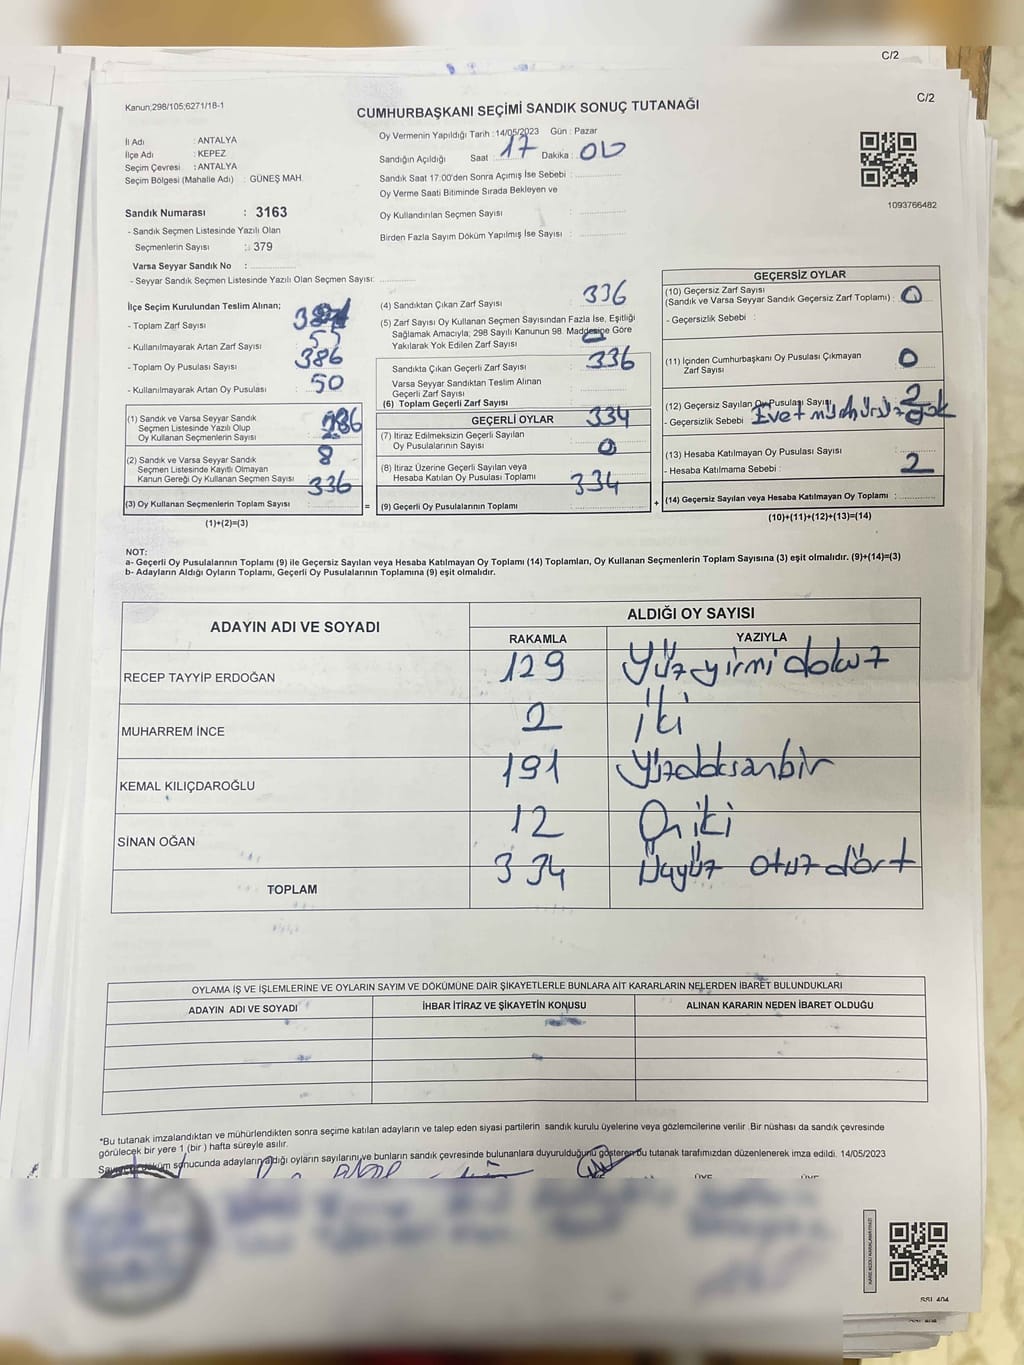 C/2
C/2
Kanun;298/105;6271/18-1
CUMHURBAŞKANI SEÇİMİ SANDIK SONUÇ TUTANAĞI
İl Adı : ANTALYA
İlçe Adı : KEPEZ
Seçim Çevresi : ANTALYA
Seçim Bölgesi (Mahalle Adı) : GÜNEŞ MAH.
Oy Vermenin Yapıldığı Tarih : 14/05/2023 Gün : Pazar
Sandığın Açıldığı Saat : 17 Dakika :
Sandık Saat 17.00'den Sonra Açımış İse Sebebi :
Oy Verme Saati Bitiminde Sırada Bekleyen ve
Oy Kullandırılan Seçmen Sayısı :
Birden Fazla Sayım Döküm Yapılmış İse Sayısı :
1093766482
Sandık Numarası : 3163
- Sandık Seçmen Listesinde Yazılı Olan
Seçmenlerin Sayısı : 379
Varsa Seyyar Sandık No :
- Seyyar Sandık Seçmen Listesinde Yazılı Olan Seçmen Sayısı:
İlçe Seçim Kurulundan Teslim Alınan;
- Toplam Zarf Sayısı
- Kullanılmayarak Artan Zarf Sayısı 55
- Toplam Oy Pusulası Sayısı 386
- Kullanılmayarak Artan Oy Pusulası 50
(1) Sandık ve Varsa Seyyar Sandık
Seçmen Listesinde Yazılı Olup
Oy Kullanan Seçmenlerin Sayısı
(2) Sandık ve Varsa Seyyar Sandık
Seçmen Listesinde Kayıtlı Olmayan
Kanun Gereği Oy Kullanan Seçmen Sayısı 8
(3) Oy Kullanan Seçmenlerin Toplam Sayısı 336
(1)+(2)=(3)
(4) Sandıktan Çıkan Zarf Sayısı : 336
(5) Zarf Sayısı Oy Kullanan Seçmen Sayısından Fazla İse, Eşitliği
Sağlamak Amacıyla; 298 Sayılı Kanunun 98. Maddesine Göre
Yakılarak Yok Edilen Zarf Sayısı :
Sandıkta Çıkan Geçerli Zarf Sayısı : 336
Varsa Seyyar Sandıktan Teslim Alınan
Geçerli Zarf Sayısı
(6) Toplam Geçerli Zarf Sayısı
GEÇERLİ OYLAR
(7) İtiraz Edilmeksizin Geçerli Sayılan
Oy Pusulalarının Sayısı : 334
(8) İtiraz Üzerine Geçerli Sayılan veya
Hesaba Katılan Oy Pusulası Toplamı : 0
= (9) Geçerli Oy Pusulalarının Toplamı 334 +
GEÇERSİZ OYLAR
(10) Geçersiz Zarf Sayısı
(Sandık ve Varsa Seyyar Sandık Geçersiz Zarf Toplamı) : 0
- Geçersizlik Sebebi :
(11) İçinden Cumhurbaşkanı Oy Pusulası Çıkmayan
Zarf Sayısı : 0
(12) Geçersiz Sayılan Oy Pusulası Sayısı 2
- Geçersizlik Sebebi Evet mührü yok
(13) Hesaba Katılmayan Oy Pusulası Sayısı :
- Hesaba Katılmama Sebebi :
(14) Geçersiz Sayılan veya Hesaba Katılmayan Oy Toplamı : 2
(10)+(11)+(12)+(13)=(14)
NOT:
a- Geçerli Oy Pusulalarının Toplamı (9) ile Geçersiz Sayılan veya Hesaba Katılmayan Oy Toplamı (14) Toplamları, Oy Kullanan Seçmenlerin Toplam Sayısına (3) eşit olmalıdır. (9)+(14)=(3)
b- Adayların Aldığı Oyların Toplamı, Geçerli Oy Pusulalarının Toplamına (9) eşit olmalıdır.
ADAYIN ADI VE SOYADI ALDIĞI OY SAYISI
RAKAMLA YAZIYLA
RECEP TAYYİP ERDOĞAN 129 Yüzyirmi dokuz
MUHARREM İNCE 2 iki
KEMAL KILIÇDAROĞLU 191 Yüzdoksanbir
SİNAN OĞAN 12 On iki
TOPLAM 334 Üçyüz otuz dört
OYLAMA İŞ VE İŞLEMLERİNE VE OYLARIN SAYIM VE DÖKÜMÜNE DAİR ŞİKAYETLERLE BUNLARA AİT KARARLARIN NELERDEN İBARET BULUNDUKLARI
ADAYIN ADI VE SOYADI İHBAR İTİRAZ VE ŞİKAYETİN KONUSU ALINAN KARARIN NEDEN İBARET OLDUĞU
*Bu tutanak imzalandıktan ve mühürlendikten sonra seçime katılan adayların ve talep eden siyasi partilerin sandık kurulu üyelerine veya gözlemcilerine verilir .Bir nüshası da sandık çevresinde
görülecek bir yere 1 (bir ) hafta süreyle asılır.
Sayım ve döküm sonucunda adayların aldığı oyların sayılarını ve bunların sandık çevresinde bulunanlara duyurulduğunu gösteren bu tutanak tarafımızdan düzenlenerek imza edildi. 14/05/2023
ÜYE ÜYE